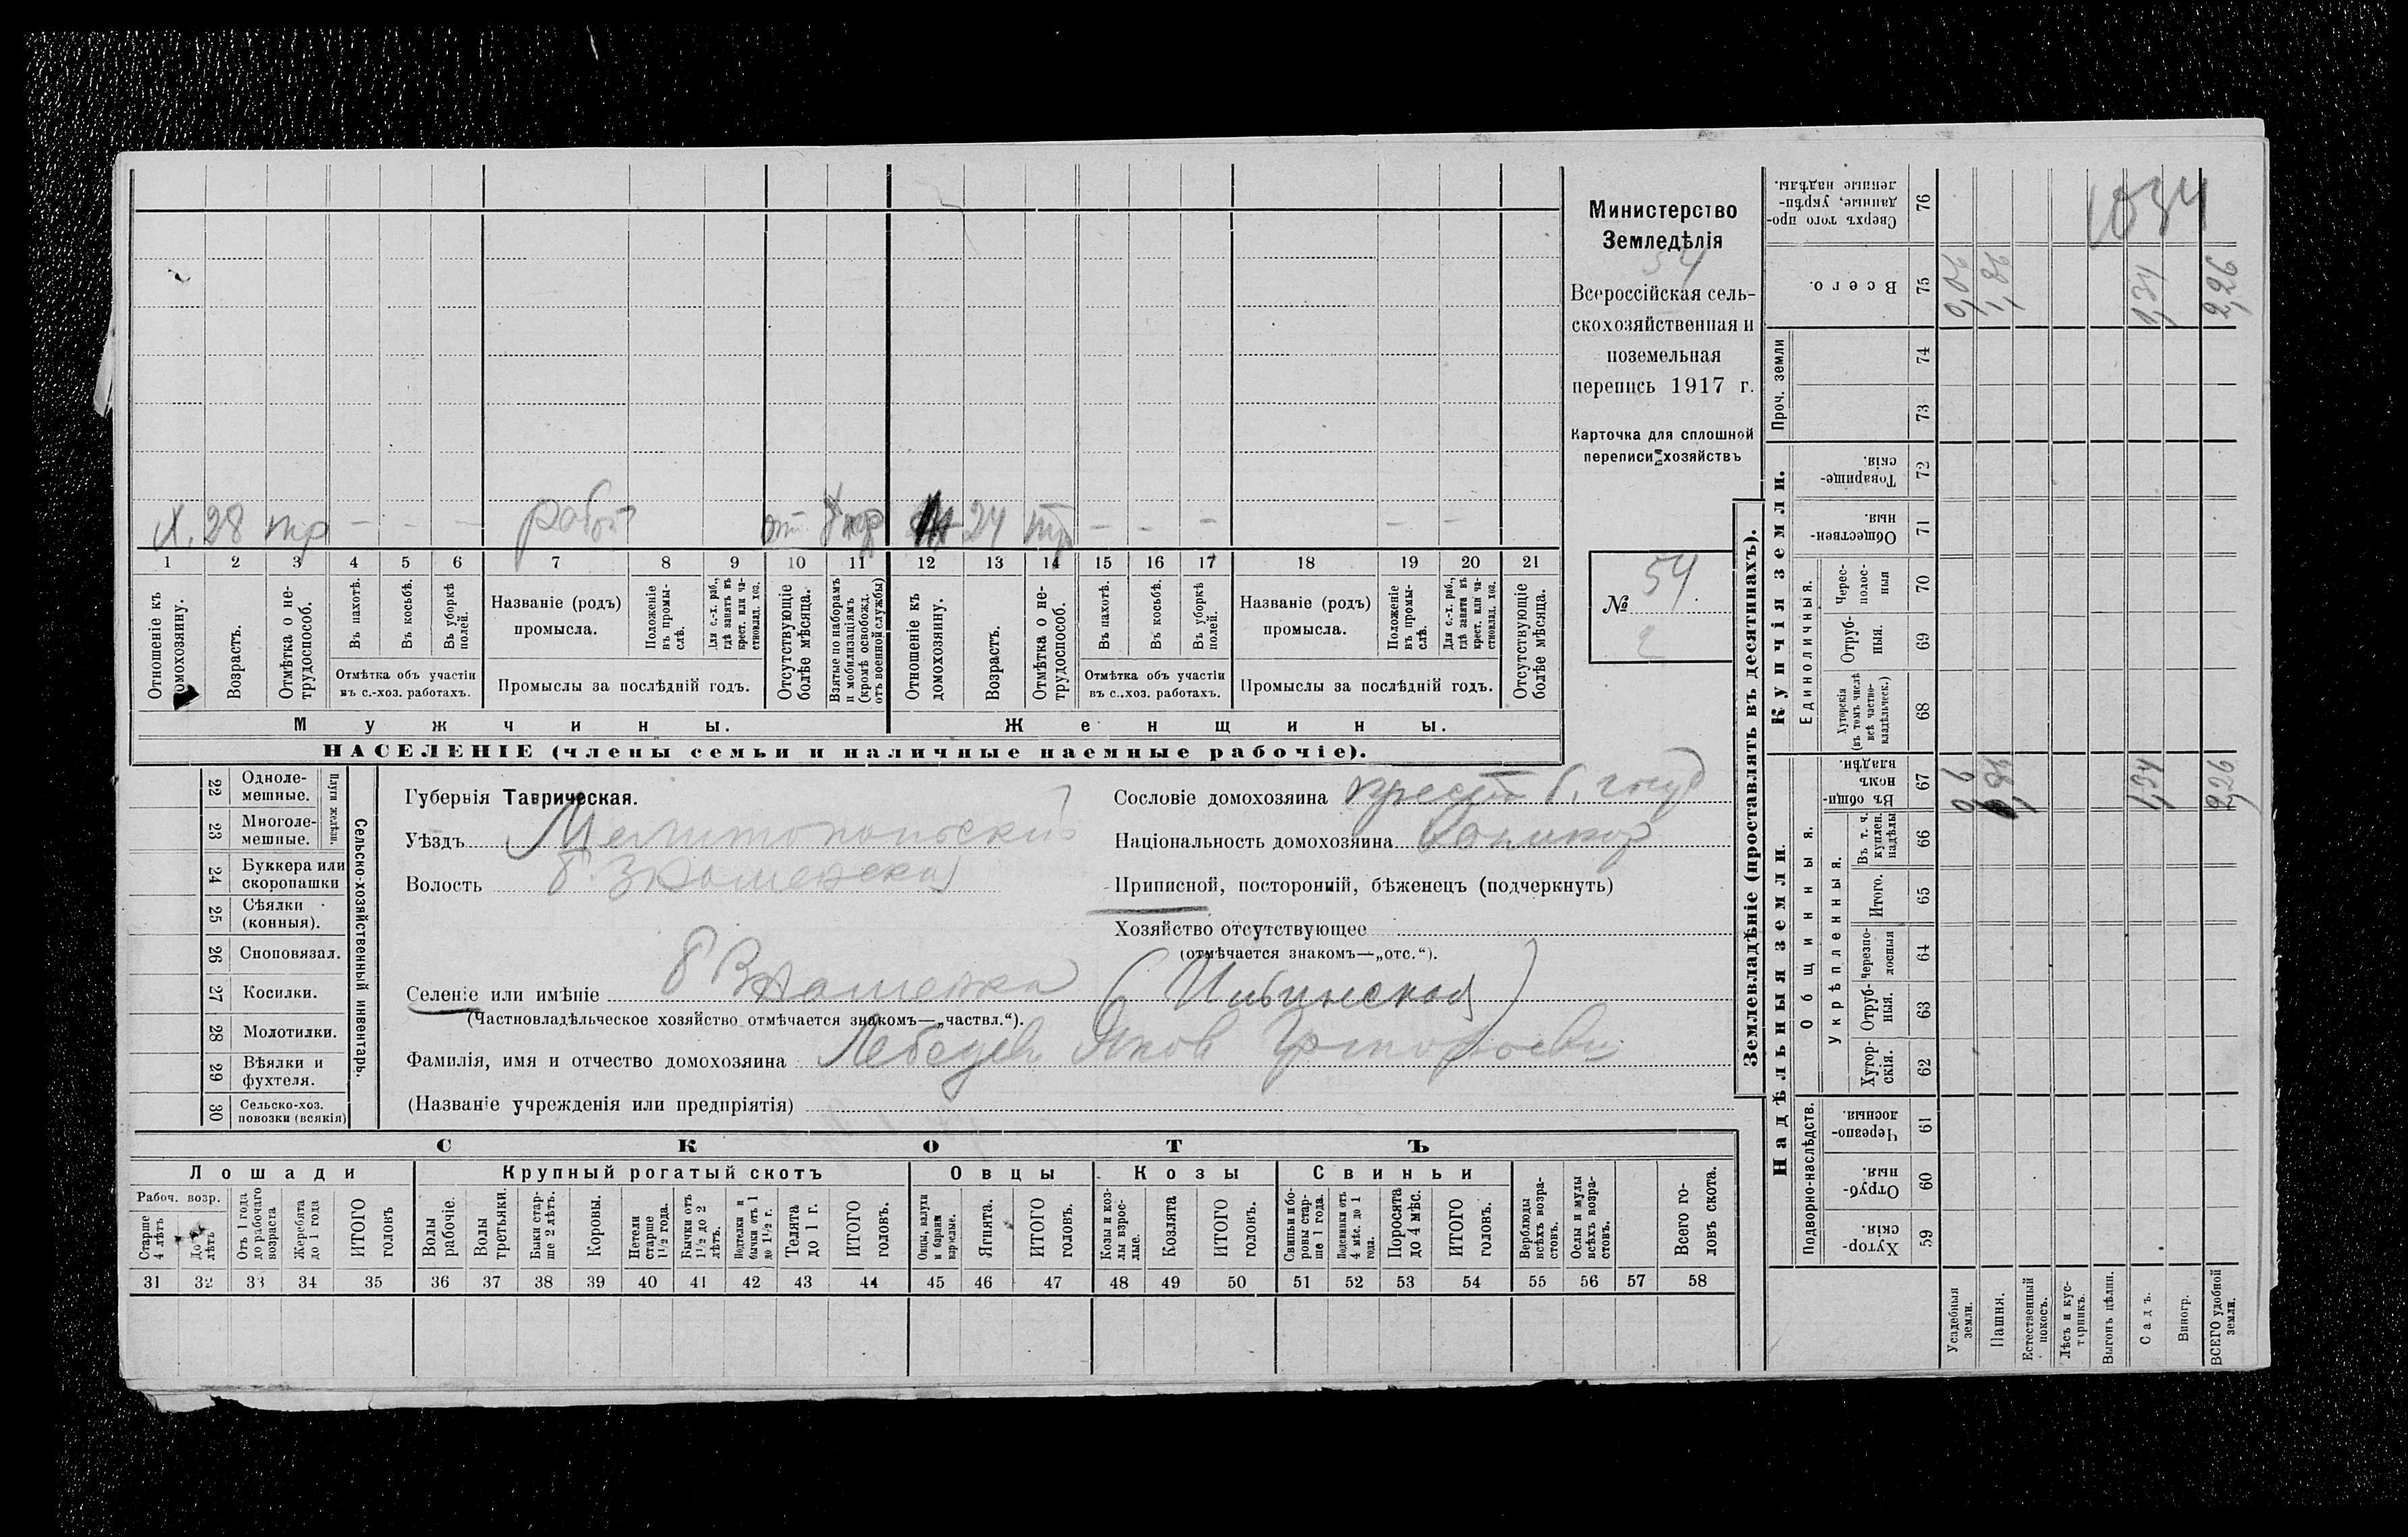 Министерство
Земледѣлія
54
Всероссійская сель-
скохозяйственная и
поземельная
перепись 1917 г.
Карточка для сплошной
переписи хозяйствъ
№ 54.
2
Х. 28 тр - - - работ 24 тр - - - - -
1 2 3 4 5 6 7 8 9 10 11 12 13 14 15 16 17 18 19 20 21
Отношеніе къ домохозяину.
Возрастъ.
Отмѣтка о не-трудоспособ.
Въ пахотѣ.
Въ косьбѣ.
Въ уборкѣ полей.
Отмѣтка объ участіи
въ с.-хоз. работахъ.
Названіе (родъ)
промысла.
Положеніе въ промы-слѣ.
Для с.-х. раб., гдѣ занятъ въ крест. или ча-стновлад. хоз.
Промыслы за послѣдній годъ.
Отсутствующіе болѣе мѣсяца.
Взятые по наборамъ и мобилизаціямъ (кромѣ освобожд. отъ военной службы)
Отношеніе къ домохозяину.
Возрастъ.
Отмѣтка о не-трудоспособ.
Въ пахотѣ.
Въ косьбѣ.
Въ уборкѣ полей.
Отмѣтка объ участіи
въ с.-хоз. работахъ.
Названіе (родъ)
промысла.
Положеніе въ промы-слѣ.
Для с.-х. раб., гдѣ занята въ крест. или ча-стновлад. хоз.
Промыслы за послѣдній годъ.
Отсутствующіе болѣе мѣсяца.
Мужчины.
Женщины.
НАСЕЛЕНІЕ (члены семьи и наличные наемные рабочіе).
22 Одноле-мешные.
23 Многоле-мешные.
Плуги желѣзн.
24 Буккера или скоропашки
25 Сѣялки (конныя).
26 Сноповязал.
27 Косилки.
28 Молотилки.
29 Вѣялки и фухтеля.
30 Сельско-хоз. повозки (всякія)
Сельско-хозяйственный инвентарь.
Губернія Таврическая.
Уѣздъ Мелитопольскій
Волость Б. Знаменская
Сословіе домохозяина крест. б. госуд
Національность домохозяина
Приписной, посторонній, бѣженецъ (подчеркнуть)
Хозяйство отсутствующее
(отмѣчается знакомъ—„отс.“).
Селеніе или имѣніе Б Знаменка
(Частновладѣльческое хозяйство отмѣчается знакомъ—„частвл.“).
Фамилія, имя и отчество домохозяина Лебедев Яков Григорьевич
(Названіе учрежденія или предпріятія)
СКОТЪ
Лошади
Крупный рогатый скотъ
Овцы
Козы
Свиньи
Рабоч. возр.
Старше 4 лѣтъ
До 4 лѣтъ
Отъ 1 года до рабочаго возраста
Жеребята до 1 года
ИТОГО головъ
Волы рабочіе.
Волы третьяки.
Быки стар-ше 2 лѣтъ.
Коровы.
Нетели старше 1½ года.
Бычки отъ 1½ до 2 лѣтъ.
Подтелки и бычки отъ 1 до 1½ г.
Телята до 1 г.
ИТОГО головъ.
Овцы, валухи и бараны взрослые.
Ягнята.
ИТОГО головъ.
Козы и коз-лы взрос-лые.
Козлята
ИТОГО головъ.
Свиньи и бо-ровы стар-ше 1 года.
Подсвинки отъ 4 мѣс. до 1 года.
Поросята до 4 мѣс.
ИТОГО головъ.
Верблюды всѣхъ возра-стовъ.
Ослы и мулы всѣхъ возра-стовъ.
Всего го-ловъ скота.
31 32 33 34 35 36 37 38 39 40 41 42 43 44 45 46 47 48 49 50 51 52 53 54 55 56 57 58
Землевладѣніе (проставлять въ десятинахъ).
Купчія земли.
Надѣльныя земли.
Проч. земли
Единоличныя.
Общинныя.
Укрѣпленныя.
Подворно-наслѣдств.
Сверхъ того про-данные, укрѣп-ленные надѣлы. 76
1034
Всего. 75 0,06 1,86 0,34 2,26
74
73
Товарище-скія. 72
Обществен-ныя. 71
Черес-полос-ныя 70
Отруб-ныя. 69
Хуторскія (въ томъ числѣ всѣ частно-владѣльческ.) 68
Въ общи-номъ владѣн. 67 2,26
Въ т. ч. куплен. надѣлы 66
Итого. 65
Черезпо-лосныя 64
Отруб-ныя. 63
Хутор-скія. 62
Черезпо-лосныя. 61
Отруб-ныя. 60
Хутор-скія. 59
Усадебныя земли.
Пашня.
Естественный покосъ.
Лѣсъ и кус-тарникъ.
Выгонъ цѣлин.
Садъ.
Виногр.
ВСЕГО удобной земли.